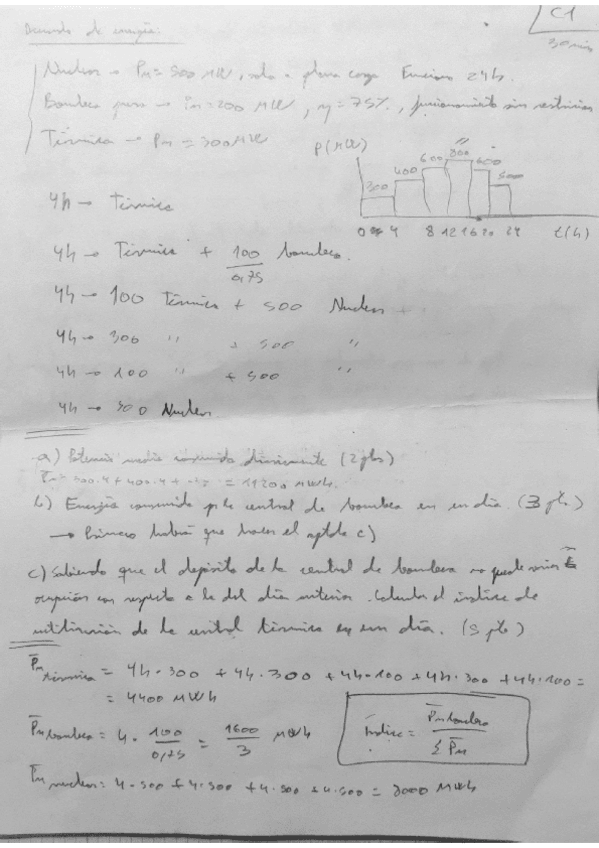 C1
30 min
Demanda de energía:
Nuclear → Pn = 500 MW, solo a plena carga Funciona 24h.
Bombeo puro → Pn = 200 MW, η = 75%, funcionamiento sin
Térmica → Pn = 300 MW
P(MW)
300 400 600 800 600 500
0 4 8 12 16 20 24 t(h)
4h → Térmica
4h → Térmica + 100/0,75 bombeo.
4h → 100 Térmica + 500 Nuclear
4h → 300 " + 500 "
4h → 100 " + 500 "
4h → 500 Nuclear.
a) Potencia media consumida diariamente (2 pts)
= 300.4 + 400.4 + = 11200 MWh.
b) Energía consumida p la central de bombeo en un día. (3 pts)
→ Primero habrá que hacer el aptdo c)
c) Sabiendo que el depósito de la central de bombeo no puede variar
ocupación con respecto a la del día anterior. Calcular el índice de
utilización de la central térmica en un día. (5 pts)
P̄n térmica = 4h·300 + 4h·300 + 4h·100 + 4h·300 + 4h·100 =
= 4400 MWh
P̄n bombeo = 4 · 100/0,75 = 1600/3 MWh
Índice = P̄n bombeo / Σ P̄n
P̄n nuclear = 4·500 + 4·500 + 4·500 + 4·500 = 8000 MWh